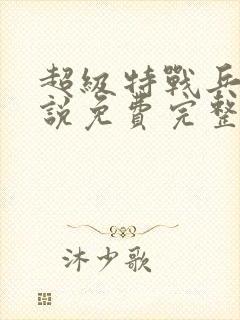 超级特戰兵
說免費完整
沐少歌